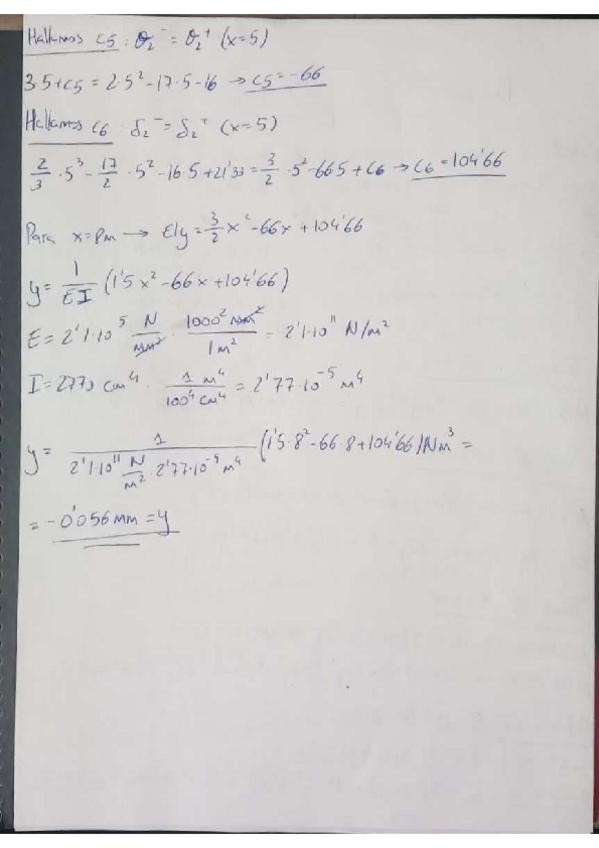 Hallamos C5: θ₂⁻ = θ₂⁺ (x=5)
3·5+C5 = 2·5² - 17·5 - 16 → C5 = -66
Hallamos C6: δ₂⁻ = δ₂⁺ (x=5)
2/3 · 5³ - 17/2 · 5² - 16·5 + 21'33 = 3/2 · 5² - 66·5 + C6 → C6 = 104'66
Para x=8m → EIy = 3/2 x² - 66x + 104'66
y = 1/EI (1'5x² - 66x + 104'66)
E = 2'1·10⁵ N/mm² · 1000² mm²/1m² = 2'1·10¹¹ N/m²
I = 2770 cm⁴ · 1 m⁴/100⁴ cm⁴ = 2'77·10⁻⁵ m⁴
y = 1/(2'1·10¹¹ N/m² · 2'77·10⁻⁵ m⁴) (1'5·8² - 66·8 + 104'66) Nm³ =
= -0'056mm = y